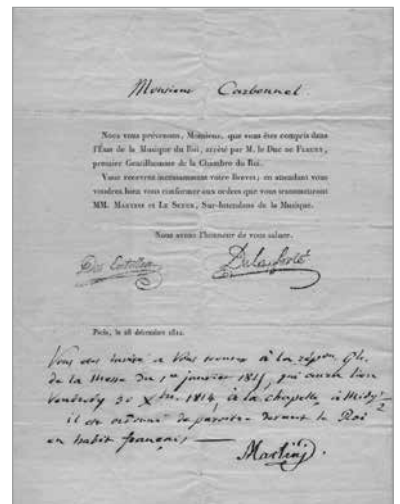 Monsieur Carbonnel
Nous vous prévenons, Monsieur, que vous êtes compris dans
l'État de la Musique du Roi, arrêté par M. le Duc de FLEURY,
premier Gentilhomme de la Chambre du Roi.
Vous recevrez incessamment votre Brevet; en attendant vous
voudrez bien vous conformer aux ordres que vous transmettront
MM. MARTINI et LE SUEUR, Sur-Intendans de la Musique.
Nous avons l'honneur de vous saluer.
Paris, le 28 décembre 1814.
Vous êtes invité a Vous trouver à la répon. Gle.
de la Messe du 1er janvier 1815, qui aura lieu
Vendredy 30 Xbre. 1814, à la chapelle, à Midy
il est ordonné de paroitre devant le Roi
en habit français —
Martini.